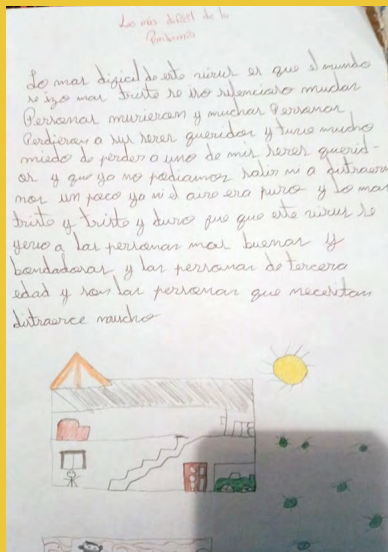 Lo mas dificil de la
Pandemia
Lo mas dificial de este virus es que el mundo
se izo mas triste se iso silencioso muchas
Personas murieron y muchas Personas
Perdieron a sus seres queridos y tuve mucho
miedo de perder a uno de mis seres querid-
os y que ya no podiamos salir ni a distraer
nos un poco ya ni el aire era puro y lo mas
triste y triste y duro fue que este virus se
a las personas mas buenas y
bondadosas y las personas de tercera
edad y son las personas que necesitan
distraerce mucho